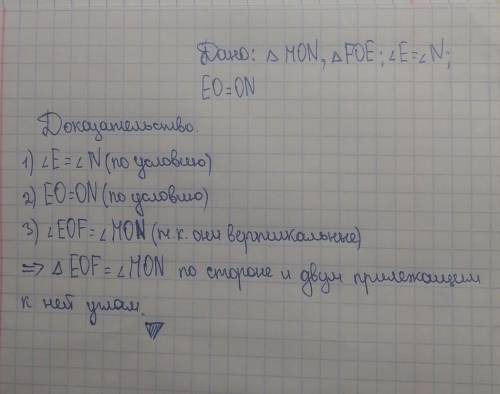 Дано: △ MON, △ FOE; ∠E=∠N;
EO=ON
Доказательство.
1) ∠E=∠N (по условию)
2) EO=ON (по условию)
3) ∠EOF=∠MON (т.к. они вертикальные)
=> △ EOF=∠MON по стороне и двум прилежащим
к ней углам.